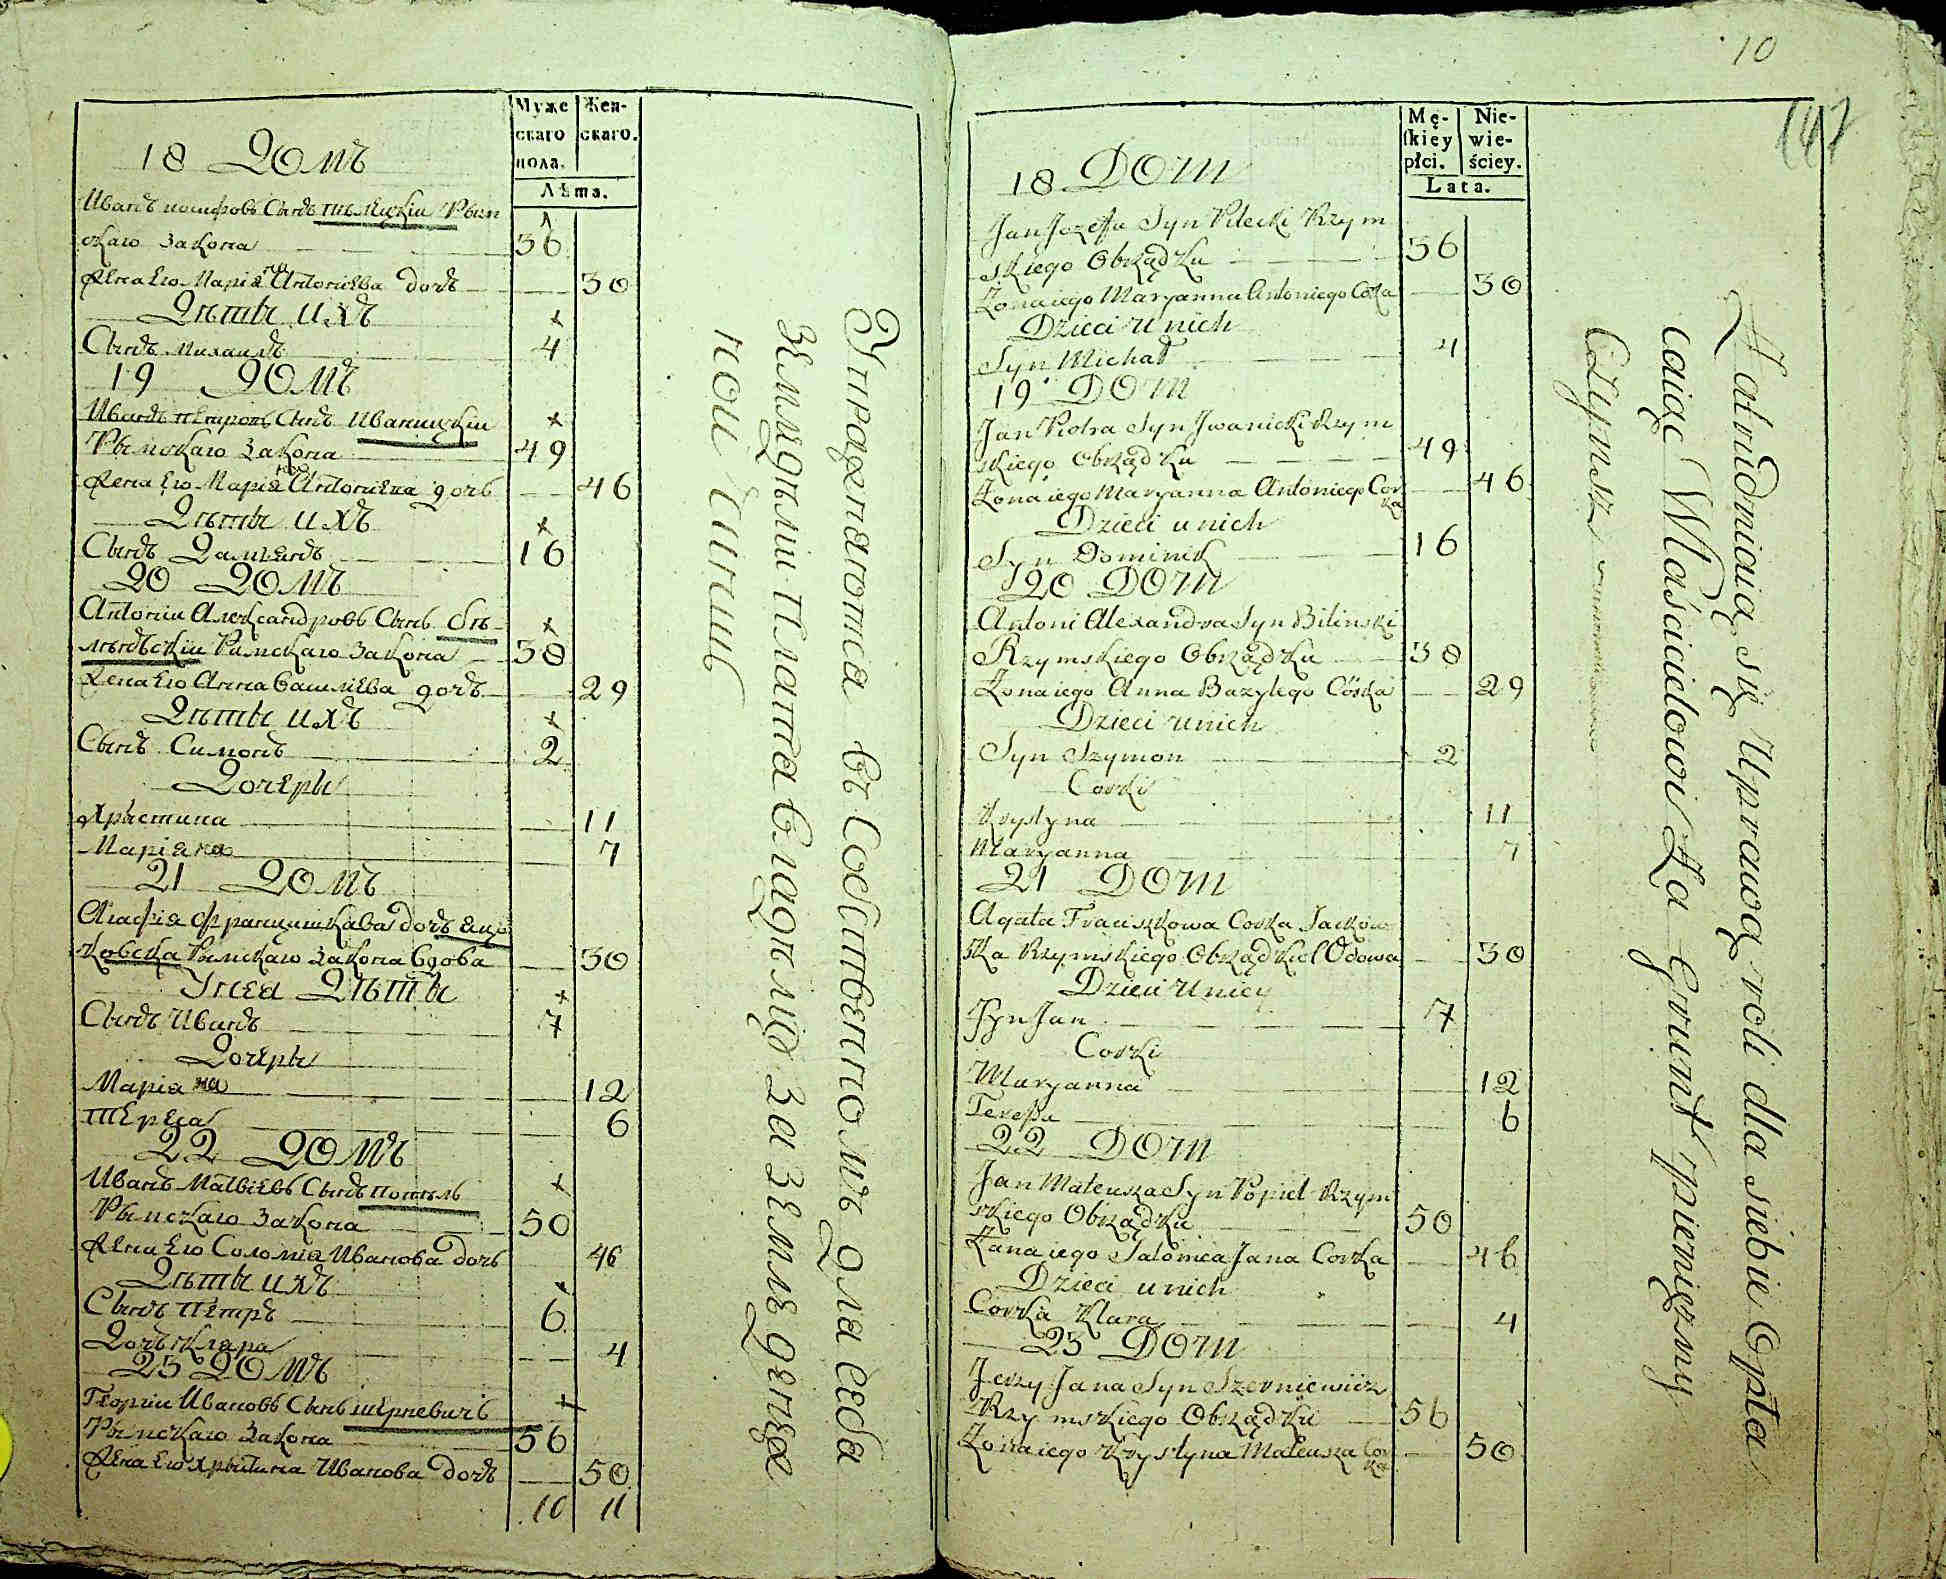 Муже
скаго
пола.
Жен-
скаго.
Лѣта.
18 Домъ
Иванъ иосифовъ Сынъ пилецкiи Рым
скаго Закона 36
Жена Ево Марiянна Антонiева дочъ 30
Дѣти ихъ
Сынъ Михаилъ 4
19 Домъ
Иванъ петровъ Сынъ Иваницкiи
Рымскаго Закона 49
Жена Ево Марiянна Антонiева дочъ 46
Дѣти ихъ
Сынъ 16
20 Домъ
Антонiи Александровъ Сынъ бѣ-
лѣнъскiи Римскаго Закона 38
Жена Ево Анна Василiева дочъ 29
Дѣти ихъ
Сынъ Симонъ 2
Дочери
Христина 11
Марiяна 7
21 Домъ
Агафiя францишкава дочъ яцо
ковска Рымскаго Закона вдова 30
Унея Дѣти
Сынъ Иванъ 7
Дочери
Марiяна 12
Тереса 6
22 Домъ
Иванъ Матвiевъ Сынъ попель
Рымскаго Закона 50
Жена Ево Соломiя Иванова дочъ 46
Дѣти ихъ
Сынъ петръ 6
Дочъ Клара 4
23 Домъ
Георгiи Ивановъ Сынъ шерневичъ
Рымскаго Закона 56
Жена Ево Христина Иванова дочъ 50
10 11
Упражняютса въ Собственномъ для себя
Земледѣлiи плата владѣлцю за землю денеж
нои чиншъ
10
147
Mę-
skiey
płci.
Nie-
wie-
ściey.
Lata.
18 Dom
Jan Jozefa Syn Pilecki Rzym
skiego Obrządku 36
Zona iego Maryanna Antoniego Corka 30
Dzieci u nich
Syn Michał 4
19 Dom
Jan Piotra Syn Jwanicki Rzym
skiego Obrządku 49
Zona iego Maryanna Antoniego Cor
ka 46
Dzieci u nich
Syn Dominik 16
20 Dom
Antoni Alexandra Syn Bilinski
Rzymskiego Obrządku 38
Zona iego Anna Bazylego Corka 29
Dzieci u nich
Syn Szymon 2
Corki
Krystyna 11
Maryanna 7
21 Dom
Agata Franciszkowa Corka Jackow
ska Rzymskiego Obrządku Wdowa 30
Dzieci u niey
Syn Jan 7
Corki
Maryanna 12
Teressa 6
22 Dom
Jan Mateusza Syn Popiel Rzym
skiego Obrządku 50
Zona iego Salomea Jana Corka 46
Dzieci u nich
Corka Klara 4
23 Dom
Jerzy Jana Syn Szerniewicz
Rzymskiego Obrządku 56
Zona iego Krystyna Mateusza Cor
ka 50
Zatrudniaią się Uprawą roli dla siebie Opła
caiąc Właścicielowi Za Grunt pieniężny
Czynsz